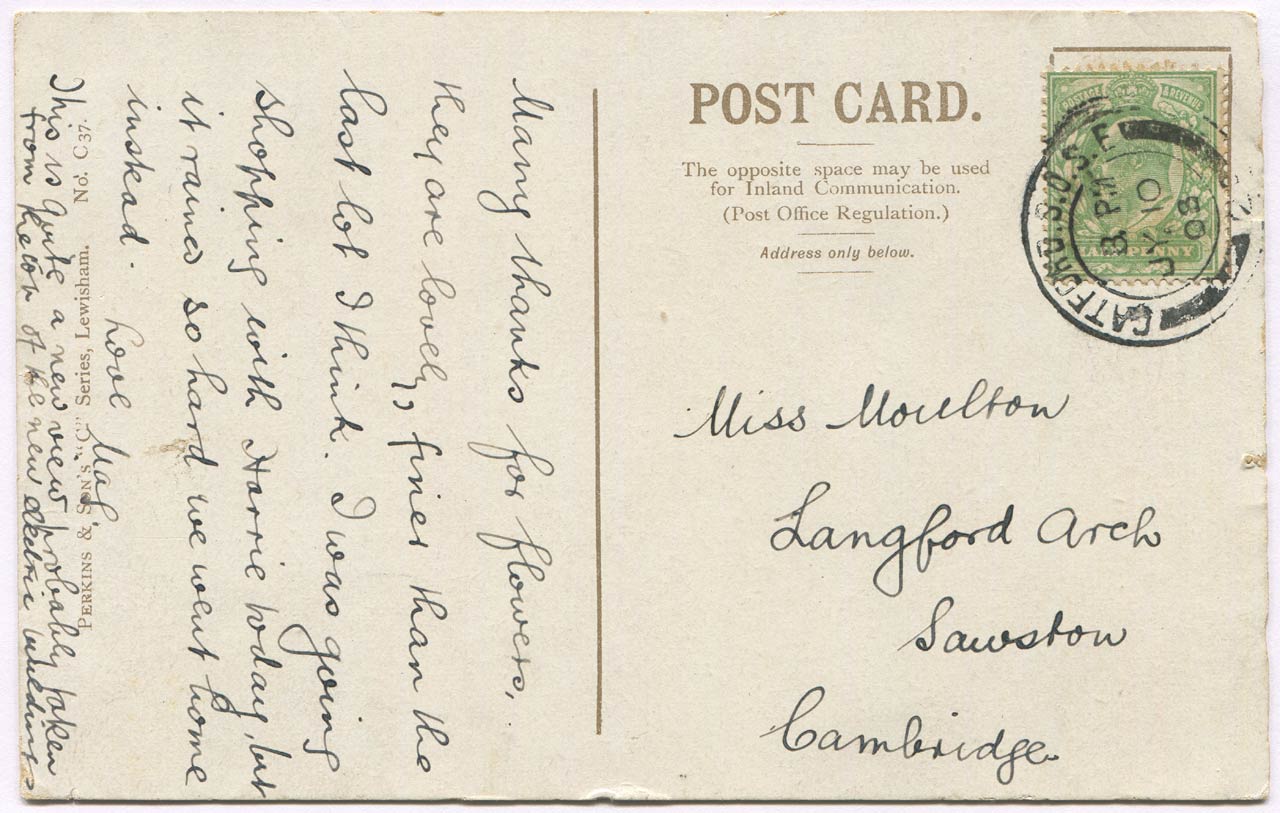 Many thanks for flowers,
they are lovely, finer than the
last lot I think. I was going
shopping with Horrie today, but
it rained so hard we went home
instead.
Love
This is quite a new view, probably taken
from the top of the new electric buildings
PERKINS & SON'S "C" Series, Lewisham. No. C 37.
POST CARD.
The opposite space may be used
for Inland Communication.
(Post Office Regulation.)
Address only below.
POSTAGE & REVENUE
HALFPENNY
CATFORD. S.O. S.E
8 PM
JY 10
08
Miss Moulton
Langford Arch
Sawston
Cambridge.